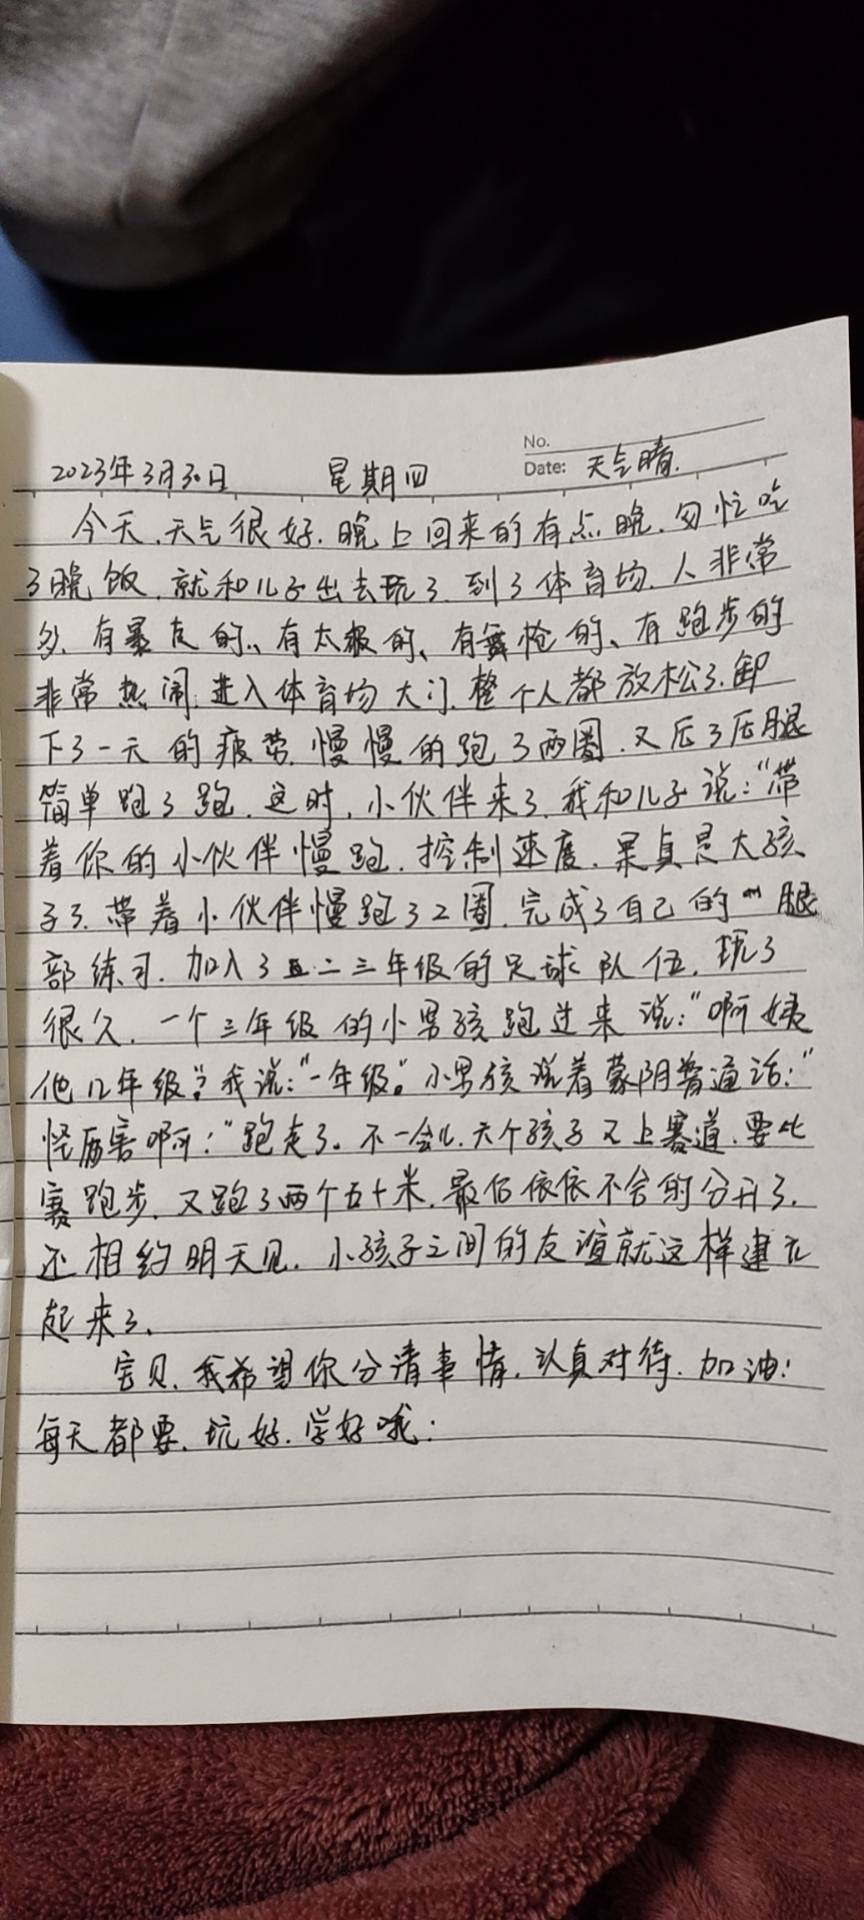 No.
2023年3月30日 星期四 Date: 天气晴.
今天.天气很好.晚上回来的有点晚.匆忙吃
了晚饭.就和儿子出去玩了.到了体育场.人非常
多.有暴走的、有太极的、有舞枪的、有跑步的
非常热闹.进入体育场大门.整个人都放松了.卸
下了一天的疲劳.慢慢的跑了两圈.又压了压腿
简单跑了跑.这时.小伙伴来了.我和儿子说:“带
着你的小伙伴慢跑.控制速度.果真是大孩
子了.带着小伙伴慢跑了2圈.完成了自己的腿
部练习.加入了二三年级的足球队伍.玩了
很久.一个三年级的小男孩跑过来说:“啊姨
他几年级?我说:“一年级。小男孩说着蒙阴普通话:“
怪厉害啊!“跑走了。不一会儿.六个孩子又上赛道.要比
赛跑步.又跑了两个五十米.最后依依不舍的分开了.
还相约明天见.小孩子之间的友谊就这样建立
起来了.
宝贝.我希望你分清事情.认真对待.加油!
每天都要.玩好.学好哦!